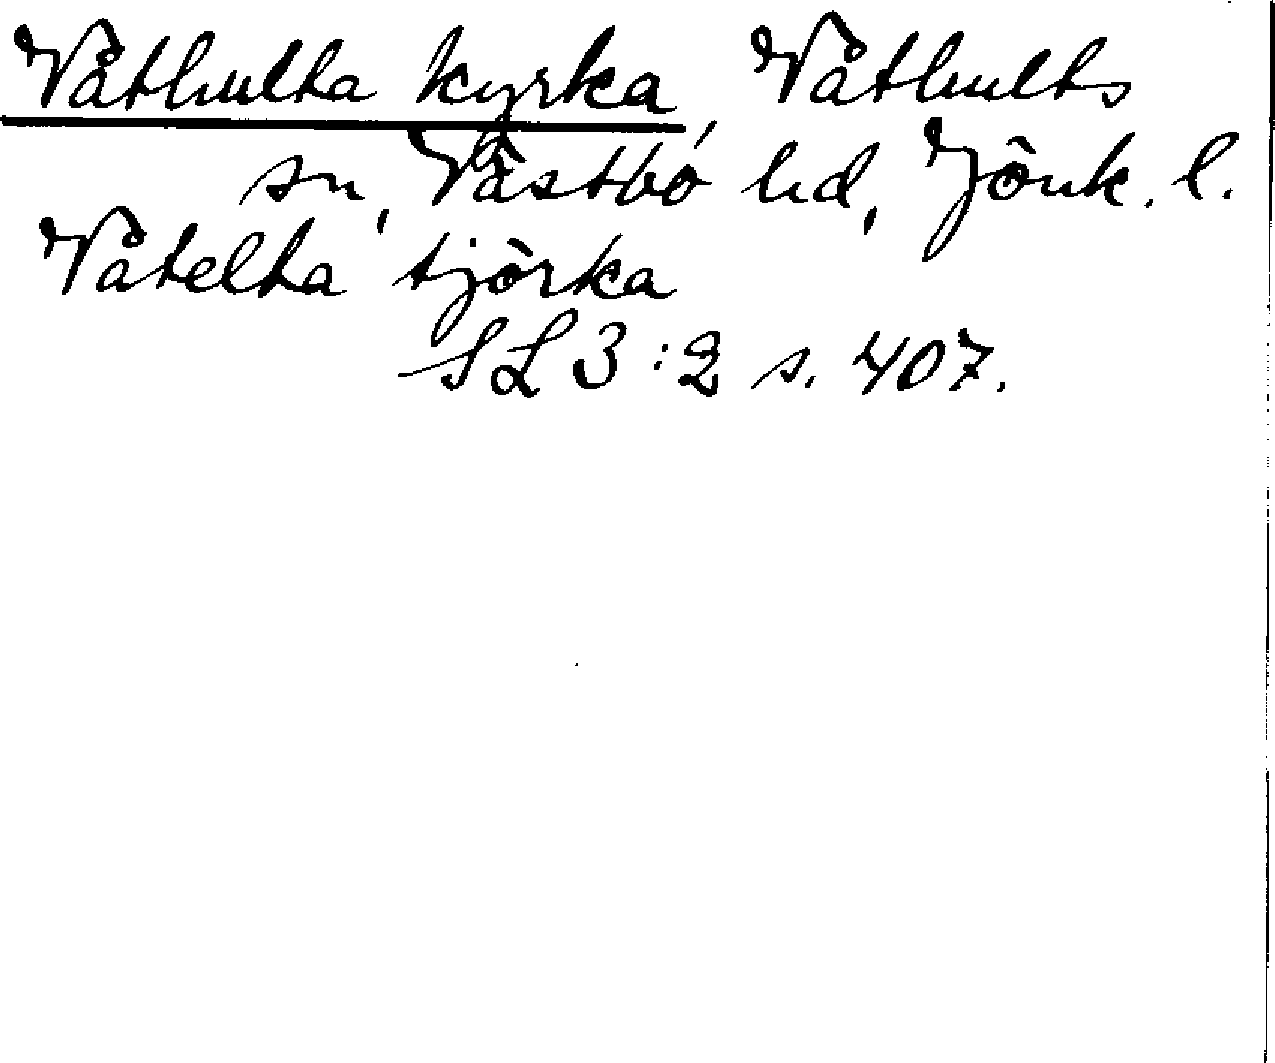 Våthulta kyrka, Våthults
sn, Västbo hd, Jönk. l.
Våtelta tjörka
SL 3:2 s. 407.